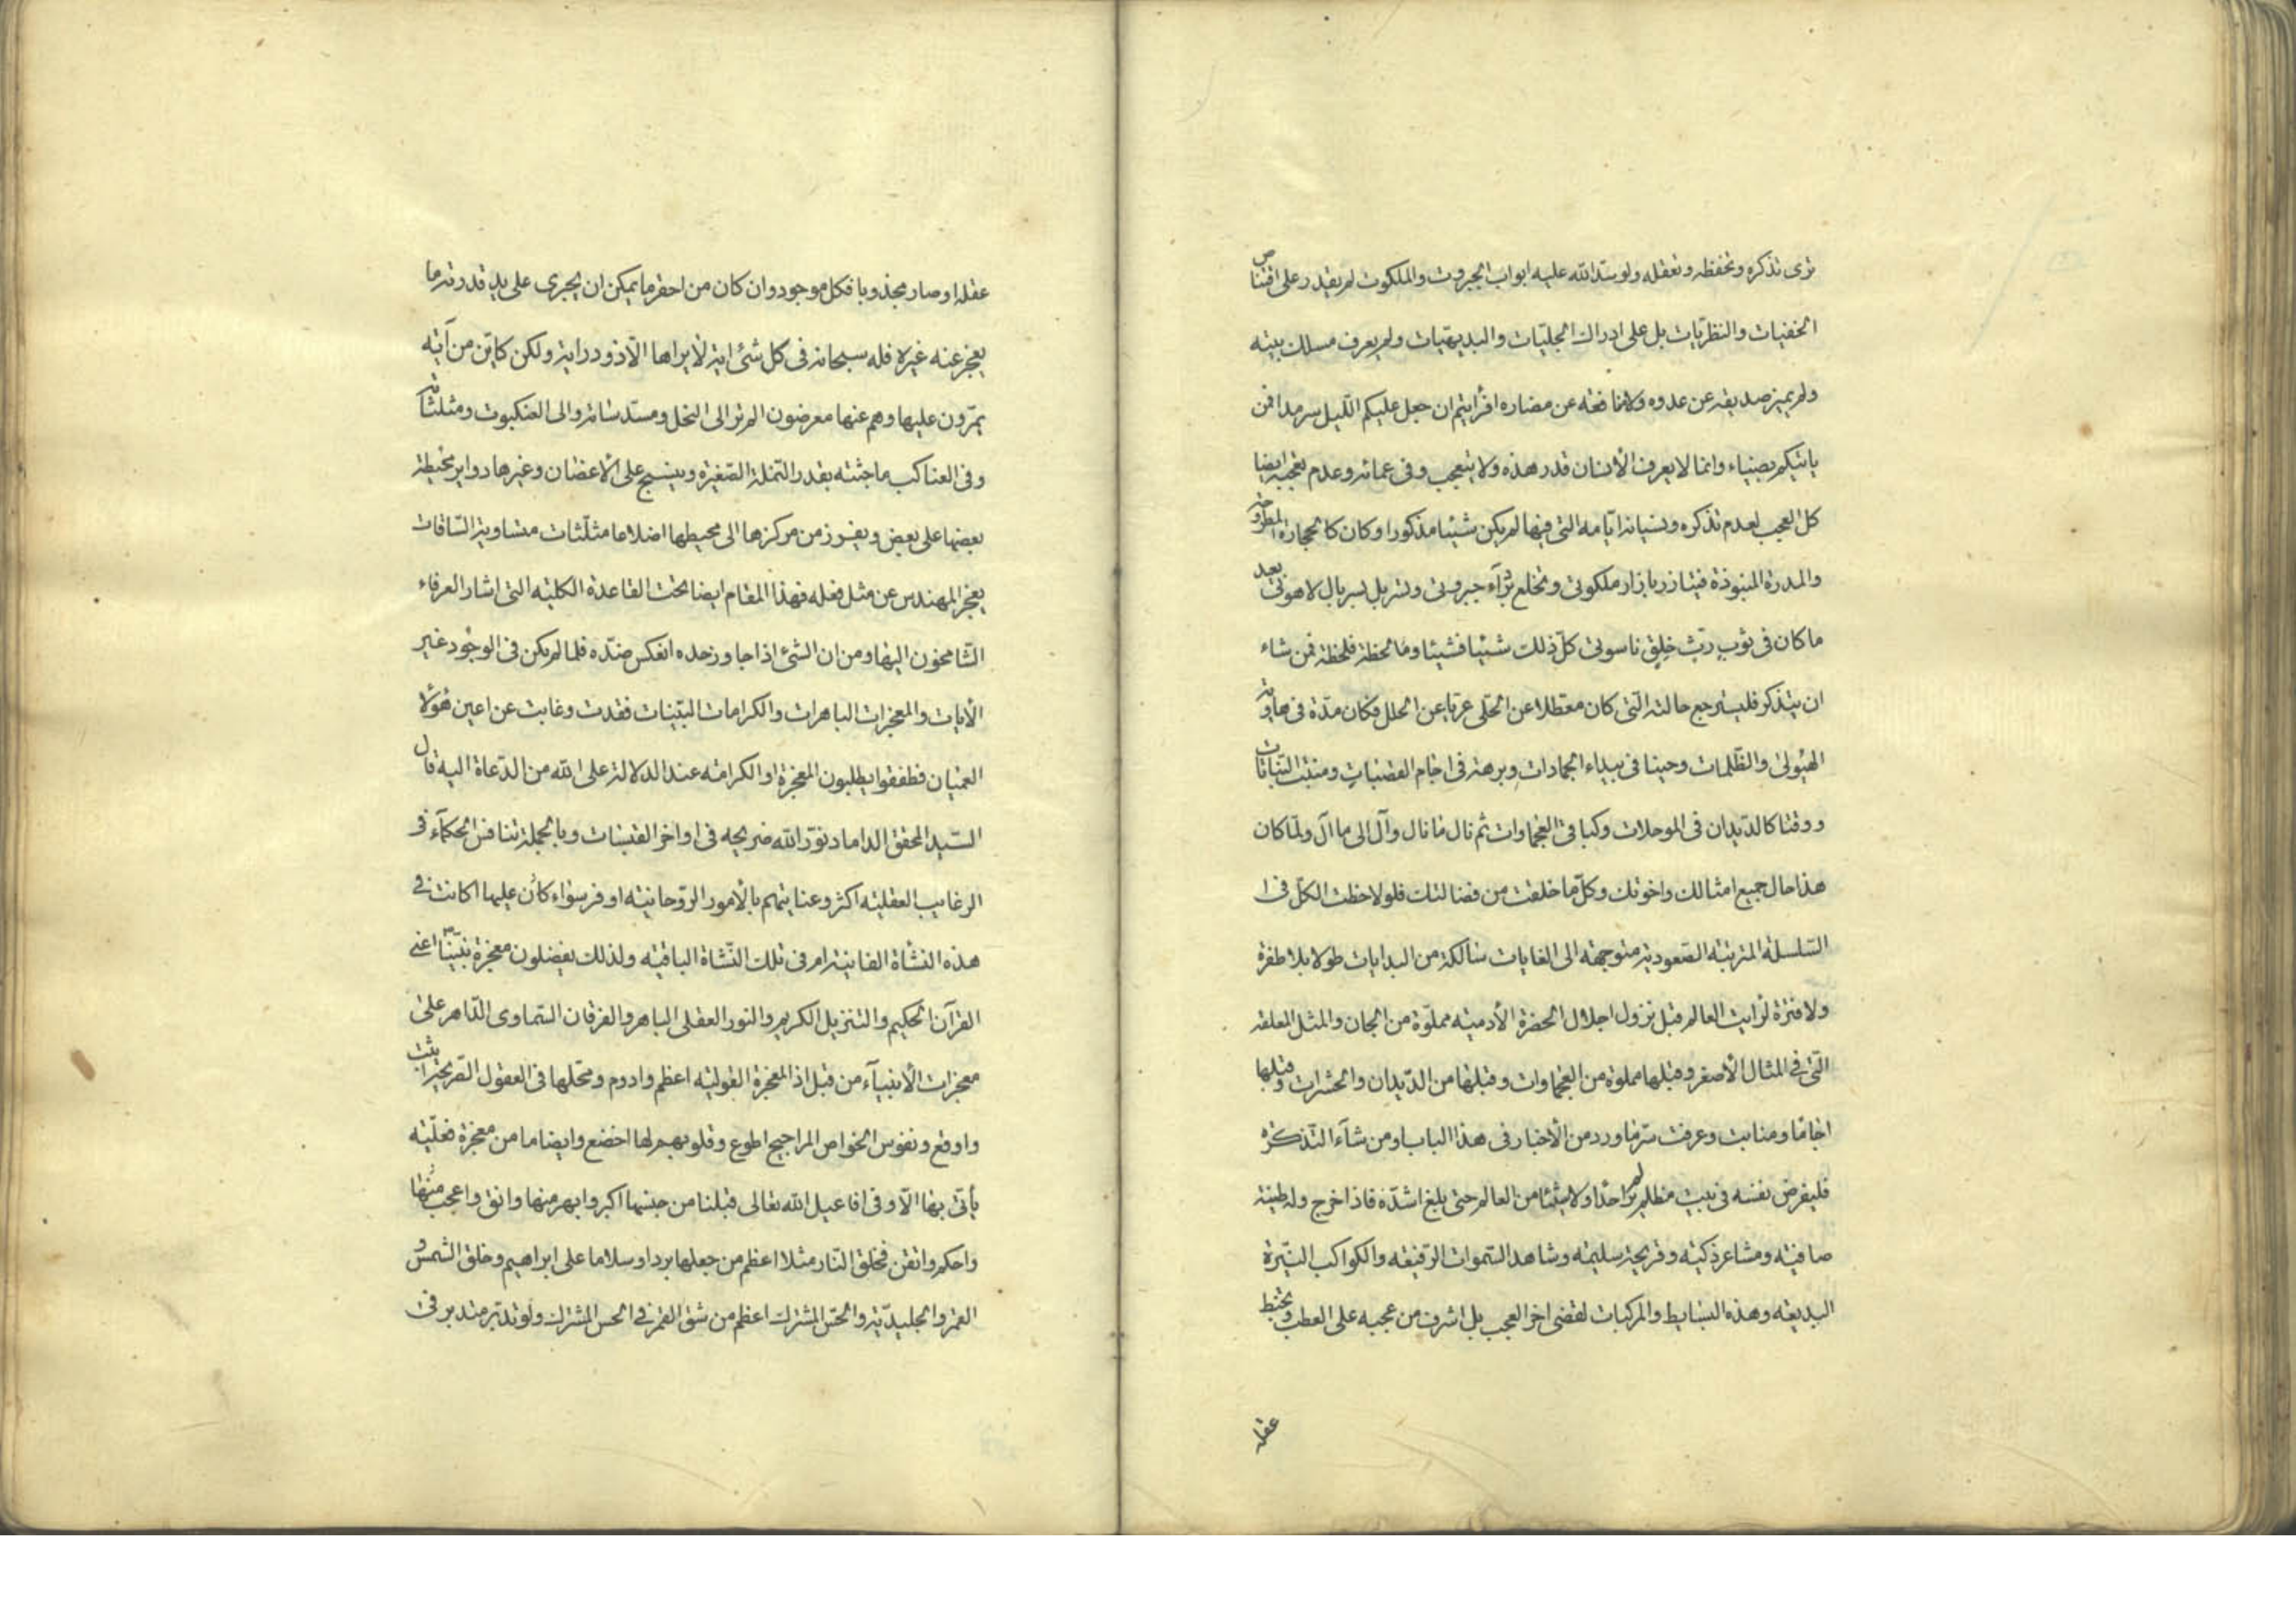 ترى تذكره وتحفظه وتعقله ولو سدّ الله عليه ابواب الجبروت والملكوت لم يقدر على اقتناص
الخفيات والنظريّات بل على ادراك الجليّات والبديهيّات ولم يعرف مسلك بيته
ولم يميز صديقه عن عدوه ولا منافعه عن مضاره افرأيتم ان جعل عليكم اللّيل سرمدا فمن
ياتيكم بضياء وانما لا يعرف الأنسان قدر هذه ولا يتعجب وفى عمائه وعدم تعجبه ايضا
كل العجب لعدم تذكره ونسيانه ايّامه التى فيها لم يكن شيئا مذكورا وكان كالحجارة المطروحة
والمدرة المنبوذة فيتازر بازار ملكوتى وتخلع برداء جبروتى وتسربل بسربال لاهوتى بعد
ما كان فى ثوب رثّ خلِق ناسوتى كلّ ذلك شيئا فشيئا ولحظة فلحظة فمن شاء
ان يتذكر فليسترجع حالته الّتى كان معطلا عن الحلى عريا عن الحلل فكان مدّة فى هاوية
الهيولى والظّلمات وحينا فى بيداء الجمادات وبرهة فى اجام القصبات ومنبت النّباتات
ووقتا كالدّيدان فى الموحلات وكباقى العجماوات ثم نال ما نال وآل الى ما آل ولمّا كان
هذا حال جميع امثالك واخوتك وكلّ ما خلقت من فضالتك فلو لاحظت الكلّ فى
السّلسلة المترتبة الصّعودية متوجهة الى الغايات سالكة من البدايات طولا بلا طفرة
ولا فترة لرايت العالم قبل نزول اجلال الحضرة الأدمية مملوّة من الجان والمثل المعلقة
الّتى فى المثال الأصغر وقبلها مملوة من العجماوات وقبلها من الدّيدان والحشرات وقبلها
اجاما ومنابت وعرفت سرّ ما ورد من الأخبار فى هذا الباب ومن شاء التّذكرة
فليفرض نفسه فى بيت مظلم لم ير احدا ولا شيئا من العالم حتى بلغ اشدّه فاذا خرج وله طينة
صافية ومشاعر ذكية وقريحة سليمة وشاهد السّموات الرّفيعة والكواكب النيّرة
البديعة وهذه البسايط والمركبات لقضى اخر العجب بل اشرف من عجبه على العطب وتخبّط
عقله
عقله او صار مجذوبا فكل موجود وان كان من احقر ما يمكن ان يجرى على يد قدرته ما
يعجز عنه غيره فله سبحانه فى كل شئ اية لا يراها الّا ذو دراية ولكن كايّن من آية
يمرّون عليها وهم عنها معرضون الم تر الى النحل ومسدّساته والى العنكبوت ومثلثاته
وفى العناكب ما جثته بقدر النّملة الصّغيرة وينسج على الأغصان وغيرها دواير محيطة
بعضها على بعض ويفرز من مركزها الى محيطها اضلاعا مثلّثات متساوية السّاقات
يعجز المهندس عن مثل فعله فهذا المقام ايضا تحت القاعدة الكلية التى اشار العرفاء
الشّامخون اليها ومن ان الشئ اذا جاوز حده انعكس ضدّه فلما لم يكن فى الوجود غير
الأيات والمعجزات الباهرات والكرامات البيّنات فقدت وغابت عن اعين هؤلا
العميان فطفقوا يطلبون المعجزة او الكرامة عند الدلالة على الله من الدّعاة اليه قال
السّيد المحقق الداماد نوّر الله ضريحه فى اواخر القبسات وبالجملة تنافس الحكمآء فى
الرغايب العقلية اكثر وعنايتهم بالأمور الرّوحانية اوفر سواء كان عليها اكانت فى
هذه النشأة الفانية ام فى تلك النّشأة الباقية ولذلك يفضلون معجزة نبيّنا ص اعنى
القرآن الحكيم والتنزيل الكريم والنور العقلى الباهر والفرقان السّماوى الدّاهر على
معجزات الأنبيآء من قبل اذ المعجزة القولية اعظم وادوم ومحلّها فى العقول الصّريحة اثبت
واوقع ونفوس الخواص المراجيح اطوع وقلوبهم لها اخضع وايضا ما من معجزة فعليّة
يأتى بها الّا وفى افاعيل الله تعالى قبلنا من جنسها اكبر وابهر منها وانق واعجب منها
واحكم واتقن فخلق النّار مثلا اعظم من جعلها بردا وسلاما على ابراهيم وخلق الشمس و
القمر والجليديّة والحسّ المشترك اعظم من شق القمر فى الحس المشترك ولو تدبّر متدبر فى